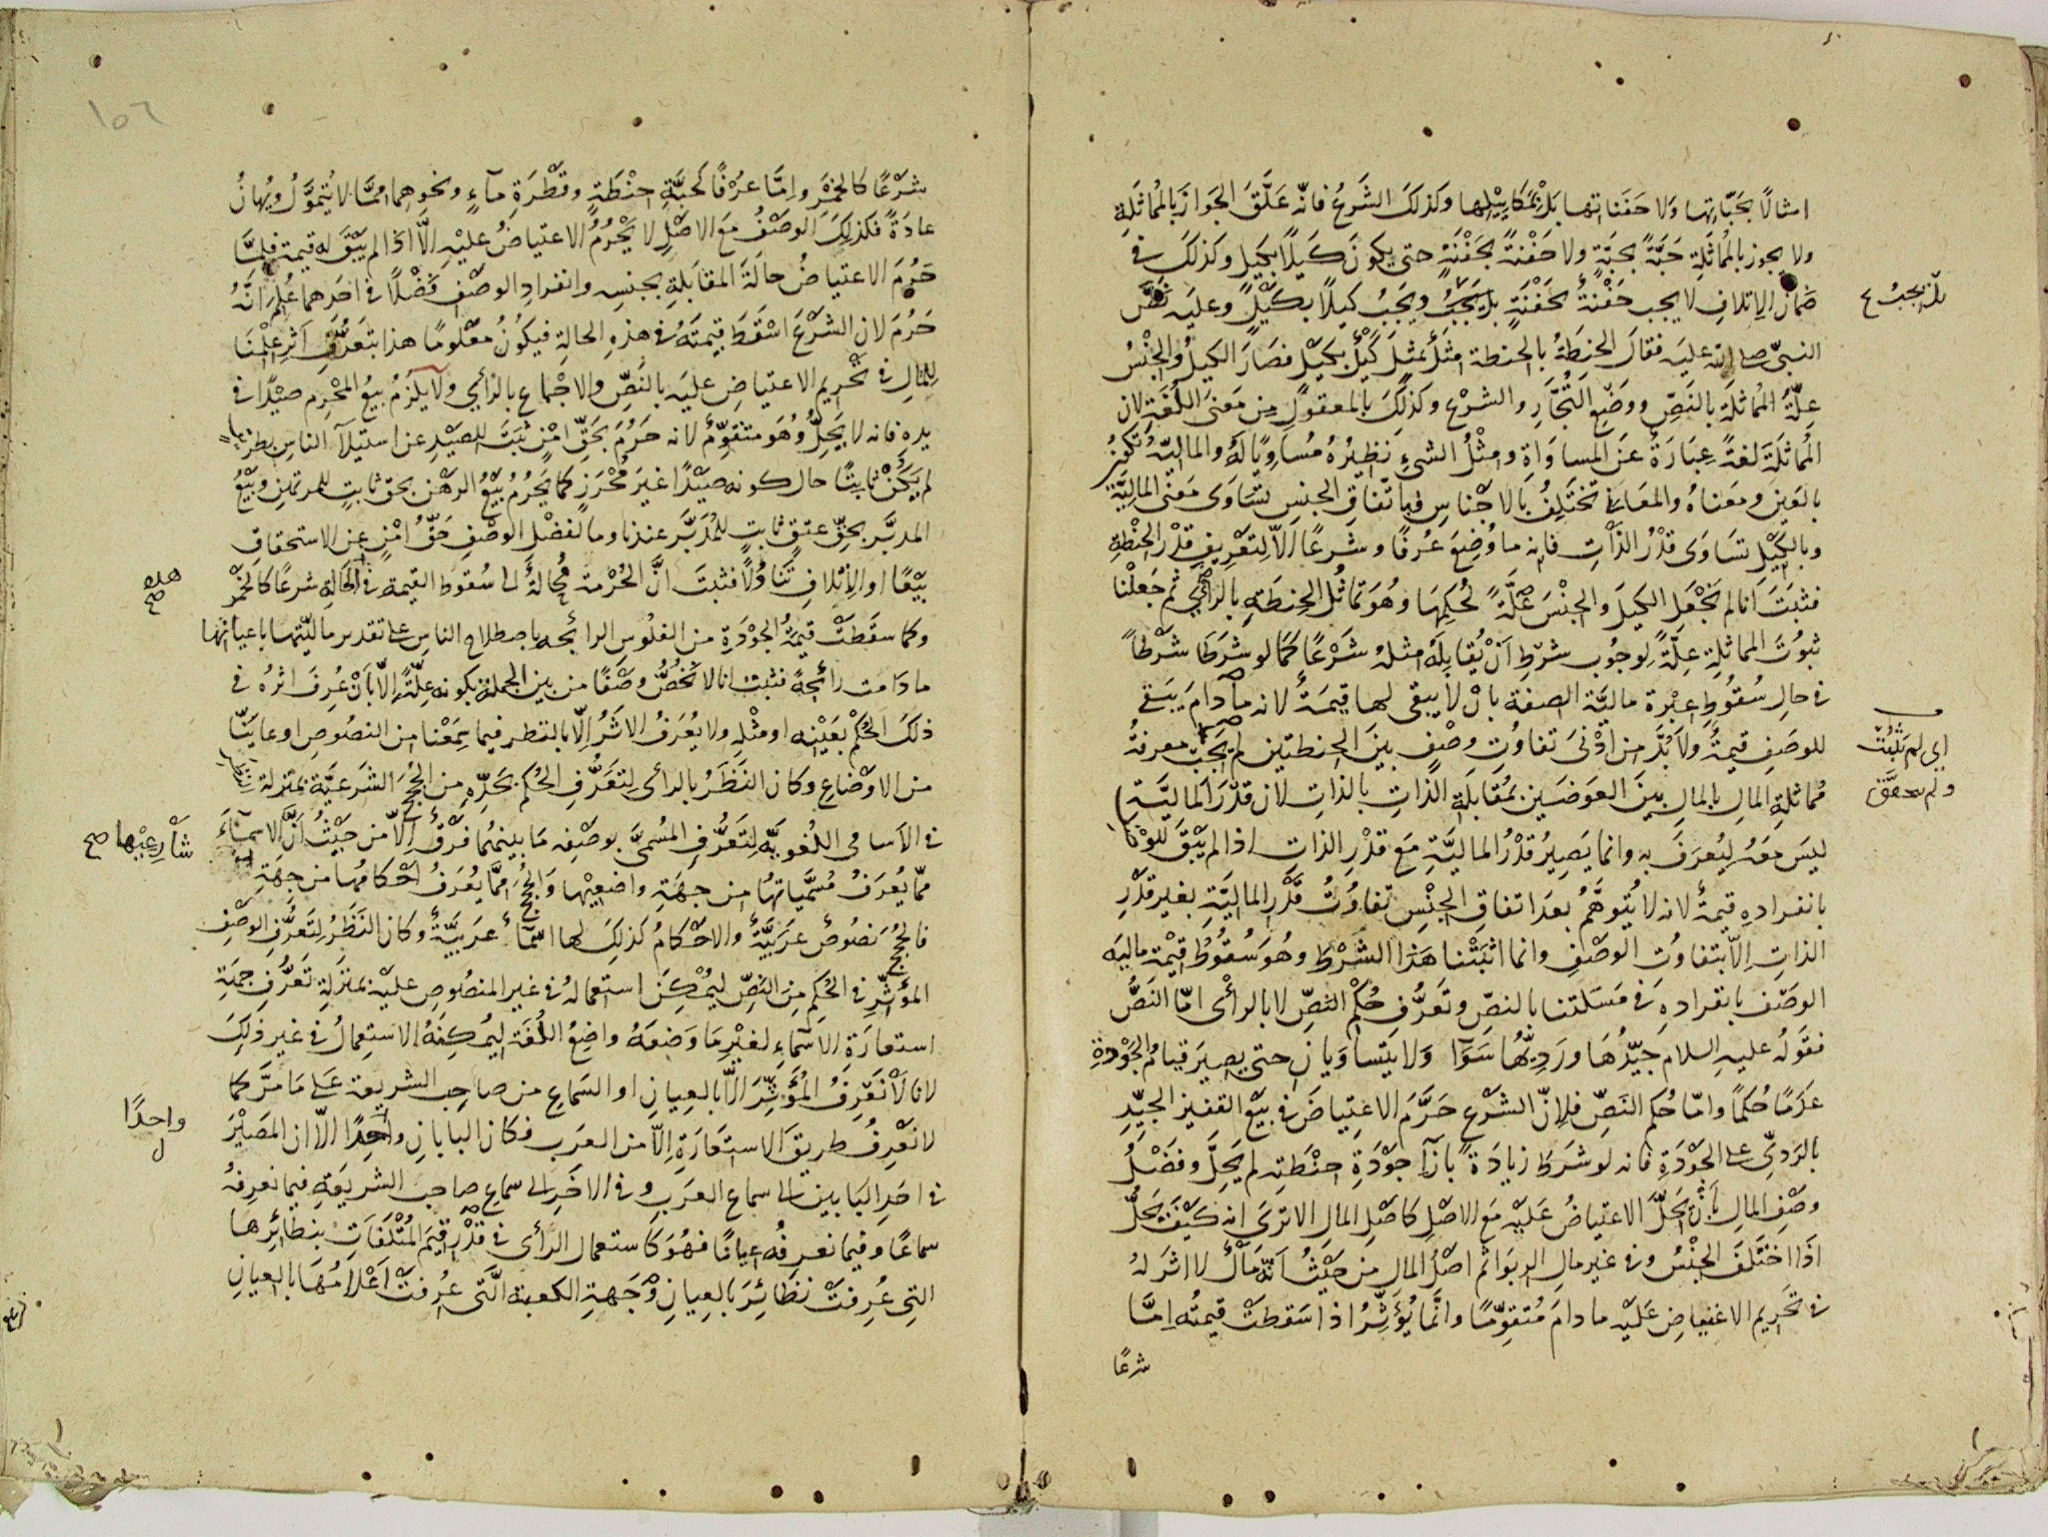 امثالًا بحَبّاتها ولا حَفَناتها بَلْ بمَكاييلها وكذلكَ الشَرعُ فانّه عَلَّقَ الجَوازَ بالمُماثَلَةِ
ولا يجوز بالمُماثَلَةِ حَبَّةً بحَبَّةٍ ولا حَفْنةً بحَفْنَةٍ حتى يكونَ كَيلًا بكَيلٍ وكذلكَ في
ضمان الاِتلافِ لا يجب حَفْنةٌ بحَفْنَةٍ بل يَجبُ ويَجبُ كيلًا بكَيْلٍ وعليه نصّ
النبىّ صلى الله عليه فقالَ الحِنطَةُ بالحنطة مِثلٌ بمثلٍ كَيْلٌ بكَيْلٍ فصَارَ الكيلُ والجِنْسُ
عِلّةُ المُماثلَةِ بالنَصِّ ووَضْعِ التُجَّارِ والشرْعِ وكذلكَ بالمعقولِ من مَعنى اللُغَةِ لان
المُماثلَةَ لغةً عِبَارَةٌ عَنَ المساوَاةِ ومِثْلُ الشىءِ نَظِيْرُهُ مُسَاوِيًا لَهُ والماليّةُ تكونُ
بالعَينِ ومعناهُ والمعَانى تختَلِفُ بالاجْناسِ فباتّفاقِ الجنسِ تسَاوَى مَعنَى الماليَّة
وبالكَيْلِ تسَاوَى قدْرُ الذّاتِ فانه ما وُضِعَ عُرفًا وشرعًا الّا لتعْريفِ قدْرِ الحِنْطةِ
فثبَتَ انا لم نَجْعَلِ الكيلَ والجنْسَ عِلّةً لحُكمِهَا وهُوَ تماثُل الحِنطَةِ بالرأىِ ثم جَعلْنا
ثبوُتَ المماثلةِ علّةً لوجُوب شرْطِ اَنْ يُقابِلَهُ مثله شَرْعًا كمَا لو شرَطَا شرْطًا
في حالِ سُقُوطِ اعبْرة ماليَّة الصفة بانْ لا يبقى لها قيمَةٌ لانه ما دامَ يَبقى
للوصَفِ قيمَةٌ ولا بُدَّ من ادْنى تفاوُتِ وصْفٍ بينَ الحنطتين لم يَجبْ معرفةُ
مُماثلةِ المالِ بالمالِ بينَ العوَضَينِ بمُقابَلَةِ الذّاتِ بالذاتِ لان قدْرَ الماليَّةِ
ليسَ معَهُ ليُعرَفَ به وانما يَصِيرُ قدْرُ الماليَّةِ مَعَ قدْرِ الذاتِ اذا لم يَبْقَ للوصْفِ
بانفرادهِ قيمةٌ لانه لا يُتَوهَّمُ بعدَ اتفاقِ الجِنْسِ تفاوُتُ قَدْرِ الماليَّةِ بغير قدْرِ
الذاتِ اِلّا بتفاوُت الوصْفِ وانما اثبتْنا هَذا الشرْطَ وهُوَ سُقُوطُ قيْمة ماليه
الوصَف بانفرادهِ في مَسَلتنا بالنصِّ وتَعرُّفِ حُكمْ النصِّ لا بالرأى امّا النَصُّ
فقولُه عليهِ السلام جَيّدُهَا ورَدِيّهُا سَوَآ وَلا يَتَساوَيانِ حتى يصيرَ قيامُ الجوْدَةِ
عدَمًا حُكمًا وامّا حُكم النَصِّ فلانّ الشرْع حَرَّمَ الاعتِياضَ فى بيْعِ القفيز الجيّدِ
بالرَدىِّ على الجَوْدَةِ فانه لو شرَطَ زيادَةً بازآ جَوْدَةِ حِنْطَتِه لم يَحِلَّ وفَضْلُ
وصْفِ المالِ بأنْ يَحِلَّ الاعتياضُ عَليْهِ مَعَ الاصْلِ كاصْلِ المالِ الا ترىَ انه كَيْفَ يَحِلُّ
اذَا اختَلَفَ الجِنْسُ وفى غيرِ مالِ الربوَا ثم اصْلُ المال مِنَ حَيْثُ انّه مَالٌ لا اثرَ لهُ
فى تحَريم الاعْتياضِ عَليْه ما دامَ مُتقوِّمًا وانَّما يُؤَثِّرُ اذا سَقطتْ قيمتُه اِمَّا
شرعًا
بل يجبُ
اى لم تثبُتْ
ولم تتحقَّق
١٥٦
شرْعًا كالخمْرِ واِمّا عرُفًا كحَبَّةِ حِنْطَةٍ وقطْرَةِ مآءٍ ونحوِهما ممَّا لا يُتموَّلُ ويُهانُ
عادَةً فكذلكَ الوصْفُ مَعَ الاصْلِ لا يَحْرُمُ الاعتياضُ عليْهِ الَّا اذا لم يَبْقَ له قيمة فلمَّا
حَرُمَ الاعتياضُ حالَةَ المقابَلَةِ بجنسِه وانفرادِ الوصْفِ فَضْلًا فى احَدِهما عُلِمَ انَّهُ
حَرُمَ لان الشرْعَ اسْقَطَ قيمتَهُ فى هذهِ الحالةِ فيكَونُ مَعْلومًا هذا بتعَرُّفِ اَثرِ عِلْمنَا
للمالِ فى تحْريم الاعتياضِ عليَه بالنَصِّ والاجْماعِ بالرأىِ ولا يَلْزَمُ بيعُ المحْرِم صيْدًا فى
يدهِ فانه لا يَحِلُّ وَهُوَ متقوِّمٌ لانه حَرُمَ بحَقِّ امْنٍ ثبَتَ للصيْدِ عن استيلآ الناسِ
لم يَكُنْ ثابِتًا حالَ كونه صيْدًا غيرَ مُحْرَزٍ كما يَحرُمُ بيْعُ الرهْنِ بحق ثابتٍ للمرتهنِ وبَيْعُ
المدبَّر بحقِّ عتقٍ ثابتٍ للمُدبَّر عندنا وما لفضْلِ الوصْفِ حَقُّ امْنٍ عن الاستحقاقِ
بيْعًا او الاِتْلافِ تَناوُلًا فثبَتَ انَّ الحُرْمةَ مُحالةٌ الى سُقوط القيمةِ فى الحَالةِ شرعًا كالخمْرِ
وكما سقَطتْ قيمَةُ الجَوْدَةِ من الفلُوس الرائجه باصطلاح الناس على تقدير ماليّتها باعيانها
ما دَامت رائجةً فثبت انا لا نخُصُّ وصْفًا من بين الجملة بكونه عِلّةً اِلّا بأن عُرِفَ اثرُهُ فى
ذلكَ الحُكْمِ بعَيْنِه او مثْلِهِ ولا يُعرَفُ الاثَرُ اِلّا بالنظر فيما سِمَعْنا من النصُوصِ او عاينَّا
من الاوْضاعِ وكان النَظَرُ بالرأى لتعَرُّفِ الحُكم بحَدِّهِ من الحُججَ الشرَعيَّةِ بمنزلة
فى الاَسامى اللُغويَّةِ لتَعَرُّفِ المُسمىَّ بوصْفِه مَا بينهُما فرْقٌ اِلّا من حيْثُ اَنَّ الاسمآءَ
ممّا يُعرَفُ مُسمَّياتهُا من جِهَةِ واضعِيْها وَالحُججَ ممَّا يُعرَفُ احْكامُها من جِهَةِ
فالحُججُ نصُوصٌ عرَبيَّةٌ والاحْكامُ كذلكَ لها اسمآءٌ عَربيَّةٌ وكان النَظَرُ لتَعرُّفِ الوصْفِ
المؤَثِّرِ فى الحُكم من النصِّ ليُمْكِنَ استعمالهُ فى غير المنصُوصِ عليْه بمنزَلةِ تَعرُّفِ جهَةِ
استعارَةِ الاسْماءِ لغيْرِ مَا وَضعهُ واضِعُ اللُغَة ليُمكِنَهُ الاستعمالُ فى غير ذلكَ
لانا لا نَعْرِفُ المُؤَثِّرَ الَّا بالعِيانِ او السَماعِ من صاحِب الشريعة عَلى مَا مَرَّ كما
لا نعْرِفُ طريقَ الاستعَارَةِ اِلّا من العرَب فكان البابانِ واحِدًا الّا ان المصَيْرَ
فى احَدِ البَابين الى سماع العرَب وفى الاخَرِ الى سماعِ صاحب الشريعَةِ فيما نعرفهُ
سماعًا وفيما نعرفُه عيانًا فهُوَ كاستعمال الرأى فى قدْرِ قيَم المُتْلَفَاتِ بنظائِرها
التِى عُرِفتْ نظائرَ بالعِيانِ وَجَهةِ الكعبة الَّتى عُرِفَتْ اَعْلامُهَا بالعِيانِ
هذه
صح
شارِعِيْها صح
واحدًا